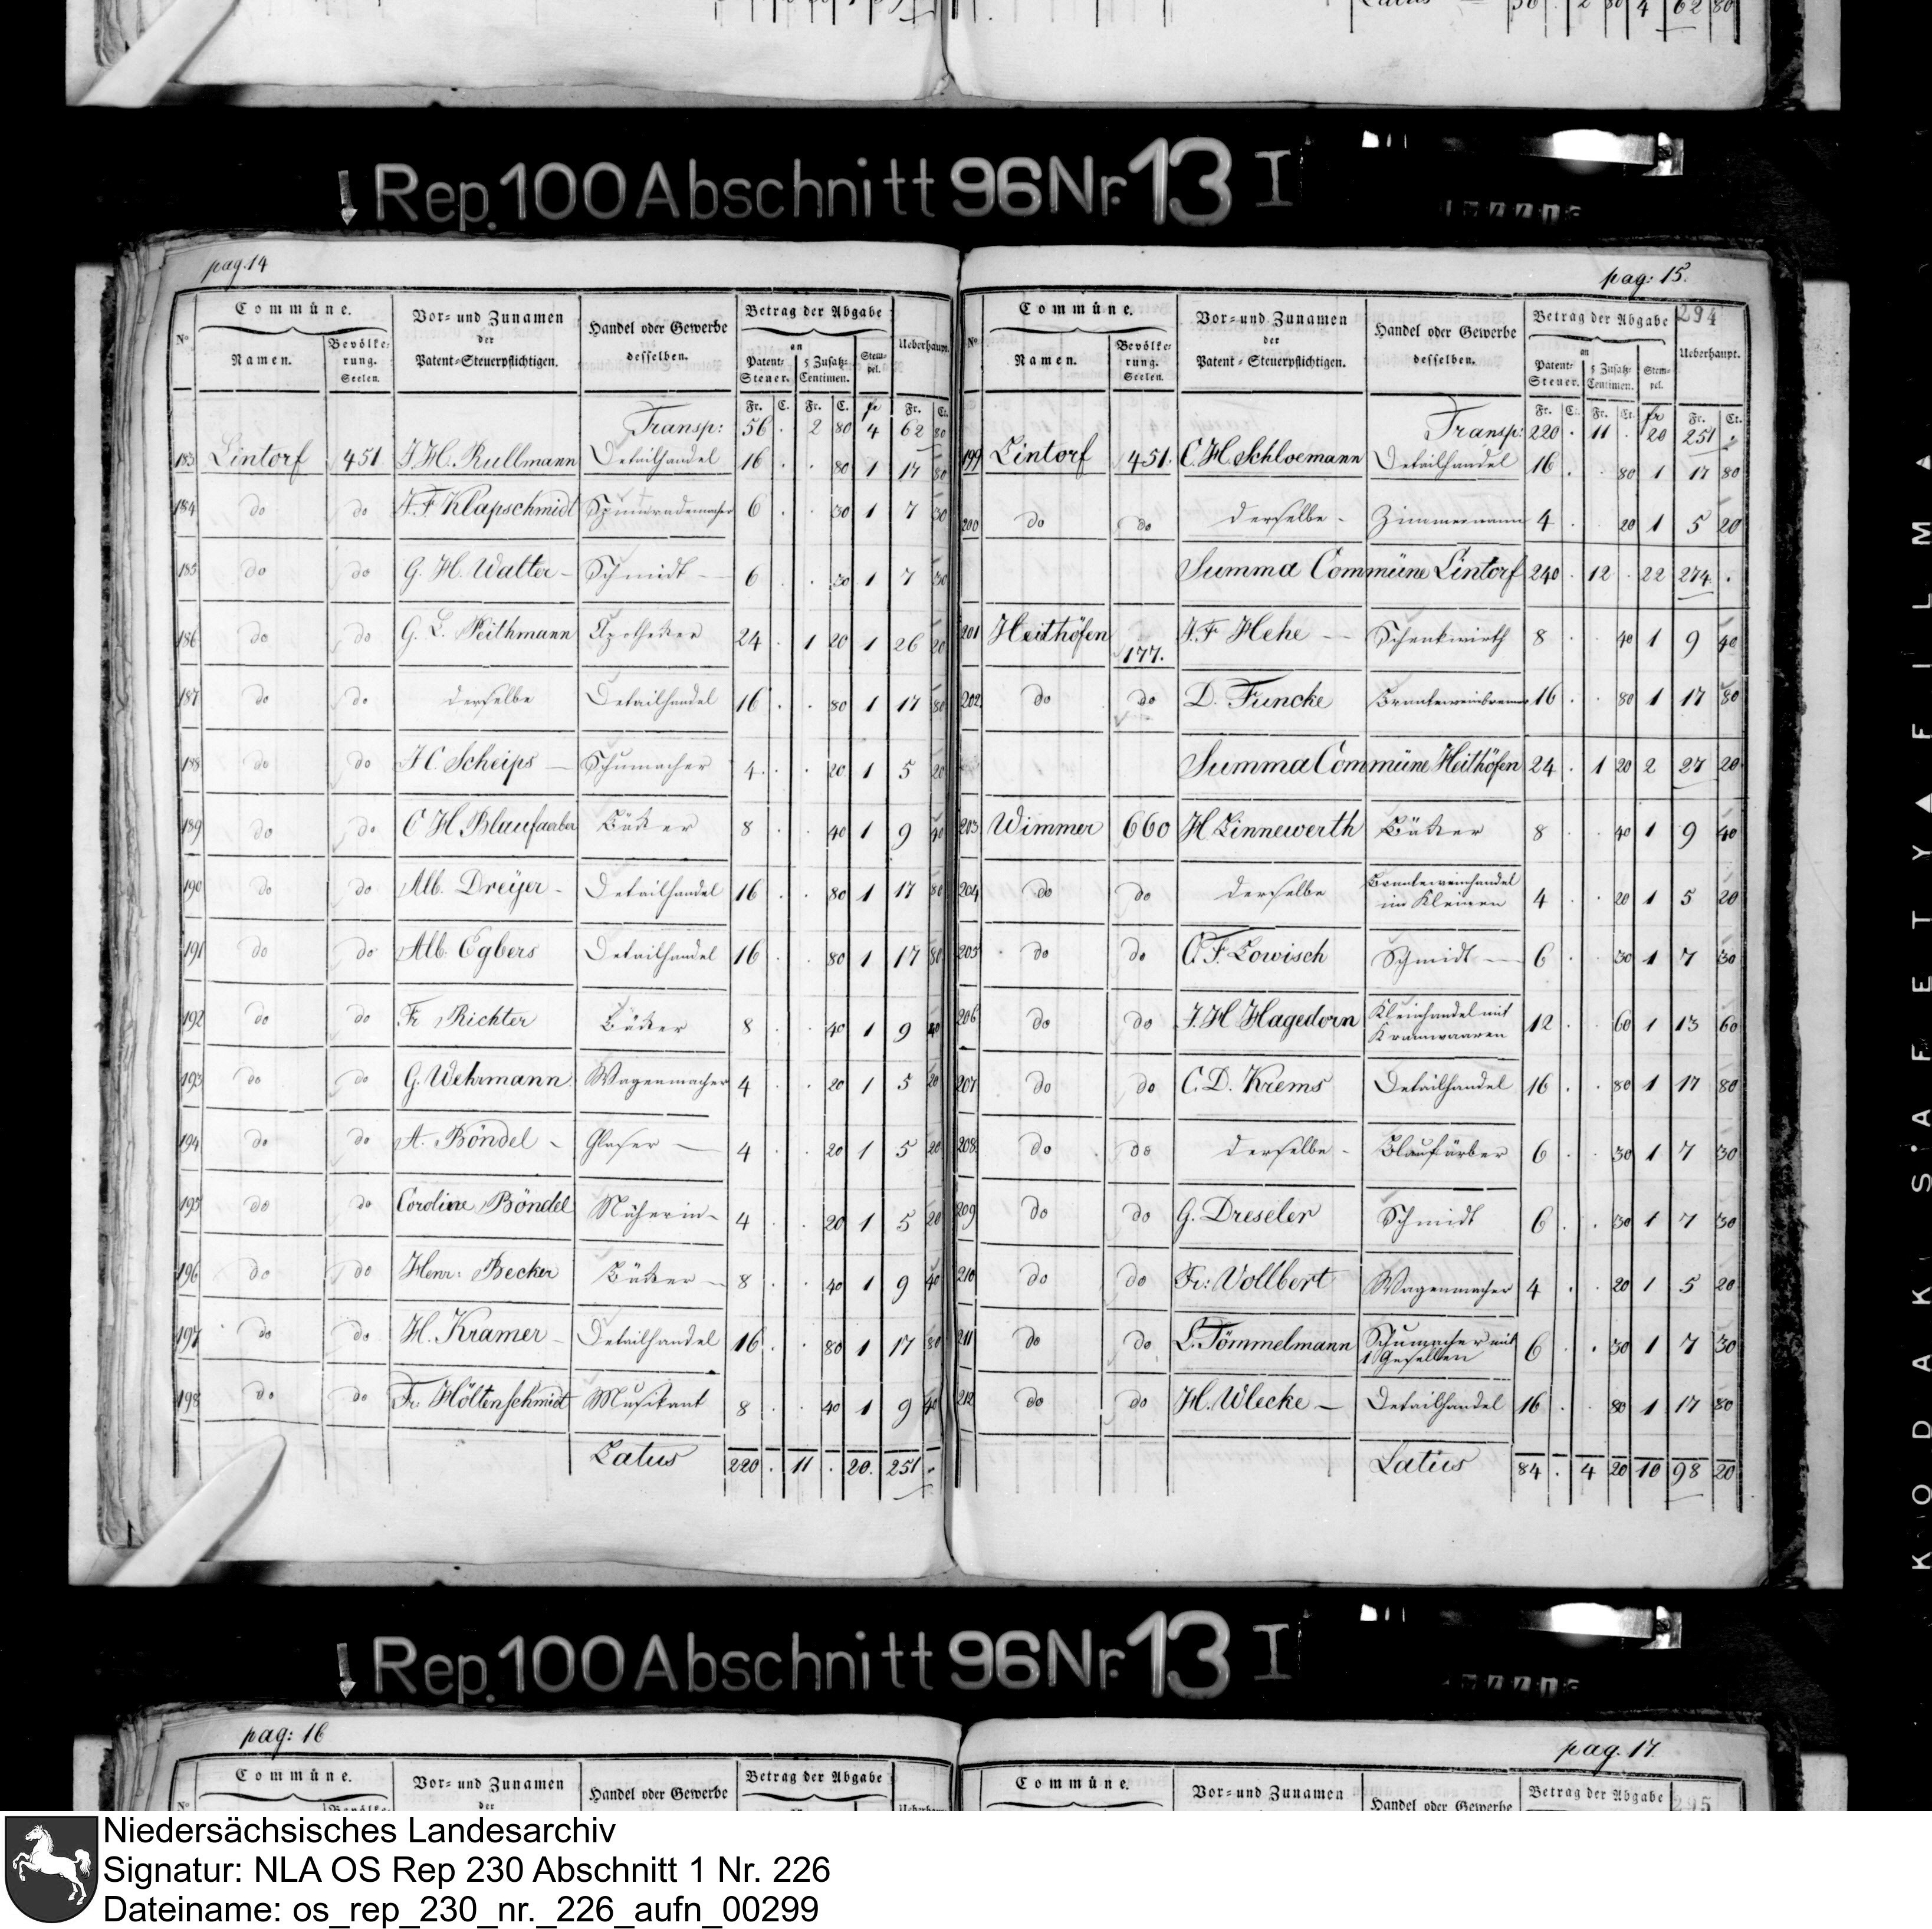 Latus 56 . 2 80 4 62 80
Rep. 100 Abschnitt 96 Nr. 13 I
pag. 14
No
Commüne.
Namen.
Bevölke-
rung.
Seelen.
Vor- und Zunamen
der
Patent-Steuerpflichtigen.
Handel oder Gewerbe
desselben.
Betrag der Abgabe
an
Patent-
Steuer.
5 Zusatz-
Centimen.
Stem-
pel.
Ueberhaupt.
Fr. C. Fr. C. fr Fr. Ct.
Transp: 56 . 2 80 4 62 80
183 Lintorf 451 J. H. Rullmann Detailhandel 16 . . 80 1 17 80
184 do do A. F. Klapschmidt Spinnrademacher 6 . . 30 1 7 30
185 do do G. H. Walter - Schmidt - 6 . . 30 1 7 30
186 do do G. L. Veithmann Apotheker 24 . 1 20 1 26 20
187 do do derselbe Detailhandel 16 . . 80 1 17 80
188 do do H C. Scheips - Schumacher 4 . . 20 1 5 20
189 do do C H. Blaufaerber Bäcker 8 . . 40 1 9 40
190 do do Alb. Dreÿer - Detailhandel 16 . . 80 1 17 80
191 do do Alb. Egbers Detailhandel 16 . . 80 1 17 80
192 do do Fr. Richter Bäcker 8 . . 40 1 9 40
193 do do G. Wehrmann Wagenmacher 4 . . 20 1 5 20
194 do do A. Böndel - Glaser - 4 . . 20 1 5 20
195 do do Caroline Böndel Näherin - 4 . . 20 1 5 20
196 do do Henr: Becker Bäcker - 8 . . 40 1 9 40
197 do do H. Kramer - Detailhandel 16 . . 80 1 17 80
198 do do Fr: Höltenschmidt Musikant 8 . . 40 1 9 40
Latus 220 . 11 . 20. 251 .
pag: 15.
294
No
Commüne.
Namen.
Bevölke-
rung.
Seelen.
Vor- und Zunamen
der
Patent-Steuerpflichtigen.
Handel oder Gewerbe
desselben.
Betrag der Abgabe
an
Patent-
Steuer.
5 Zusatz-
Centimen.
Stem-
pel.
Ueberhaupt.
Fr. C. Fr. Ct. fr Fr. Ct.
Transp: 220 . 11 . 20 251 .
199 Lintorf 451. C. H. Schloemann Detailhandel 16 . . 80 1 17 80
200 do do derselbe - Zimmermann 4 . . 20 1 5 20
Summa Commüne Lintorf 240 . 12 . 22 274 .
201 Heithöfen 177. A. F. Hehe - Schenkwirth 8 . . 40 1 9 40
202. do do D. Funcke Branteweinbrenner 16 . . 80 1 17 80
Summa Commüne Heithöfen 24 . 1 20 2 27 20
203 Wimmer 660 H. Linnewerth Bäcker 8 . . 40 1 9 40
204 do do derselbe Branteweinhandel
im Kleinen 4 . . 20 1 5 20
205 do do C. F. Lowisch Schmidt - 6 . . 30 1 7 30
206 do do J. H Hagedorn Kleinhandel mit
Kramwaaren 12 . . 60 1 13 60
207 do do C. D. Krems Detailhandel 16 . . 80 1 17 80
208. do do derselbe - Blaufärber 6 . . 30 1 7 30
209 do do G. Dreseler Schmidt 6 . . 30 1 7 30
210 do do Fr: Vollbert Wagenmacher 4 . . 20 1 5 20
211 do do L. Tömmelmann Schumacher mit
1 Gesellen 6 . . 30 1 7 30
212 do do H. Wlecke - Detailhandel 16 . . 80 1 17 80
Latus 84 . 4 20 10 98 20
KODAK SAFETY FILM
Rep. 100 Abschnitt 96 Nr. 13 I
pag: 16
No
Commüne.
Bevölke-
Vor- und Zunamen
der
Handel oder Gewerbe
Betrag der Abgabe
Ueberhaupt
pag. 17.
295
Commüne.
Vor- und Zunamen
Handel oder Gewerbe
Betrag der Abgabe
Niedersächsisches Landesarchiv
Signatur: NLA OS Rep 230 Abschnitt 1 Nr. 226
Dateiname: os_rep_230_nr._226_aufn_00299